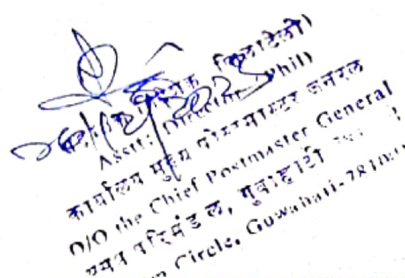 (फिलाटेली)
Asstt. Director (Phil)
कार्यालय मुख्य पोस्टमास्टर जनरल
O/O the Chief Postmaster General
परिमंडल, गुवाहाटी
Circle, Guwahati-781001